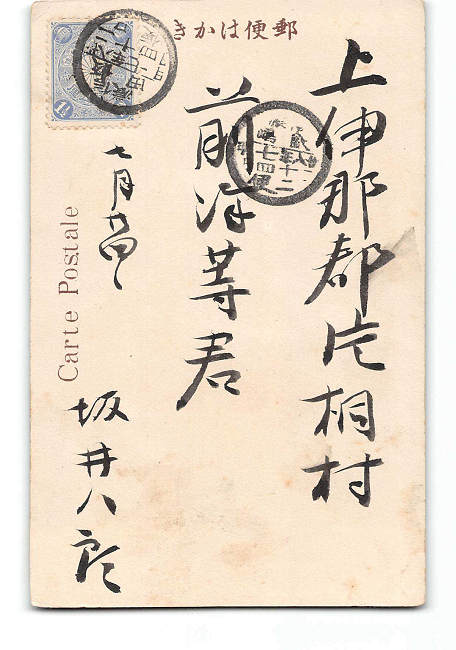 郵便はかき
上伊那郡片桐村
前澤等君
七月廿四日
坂井八郎
Carte Postale